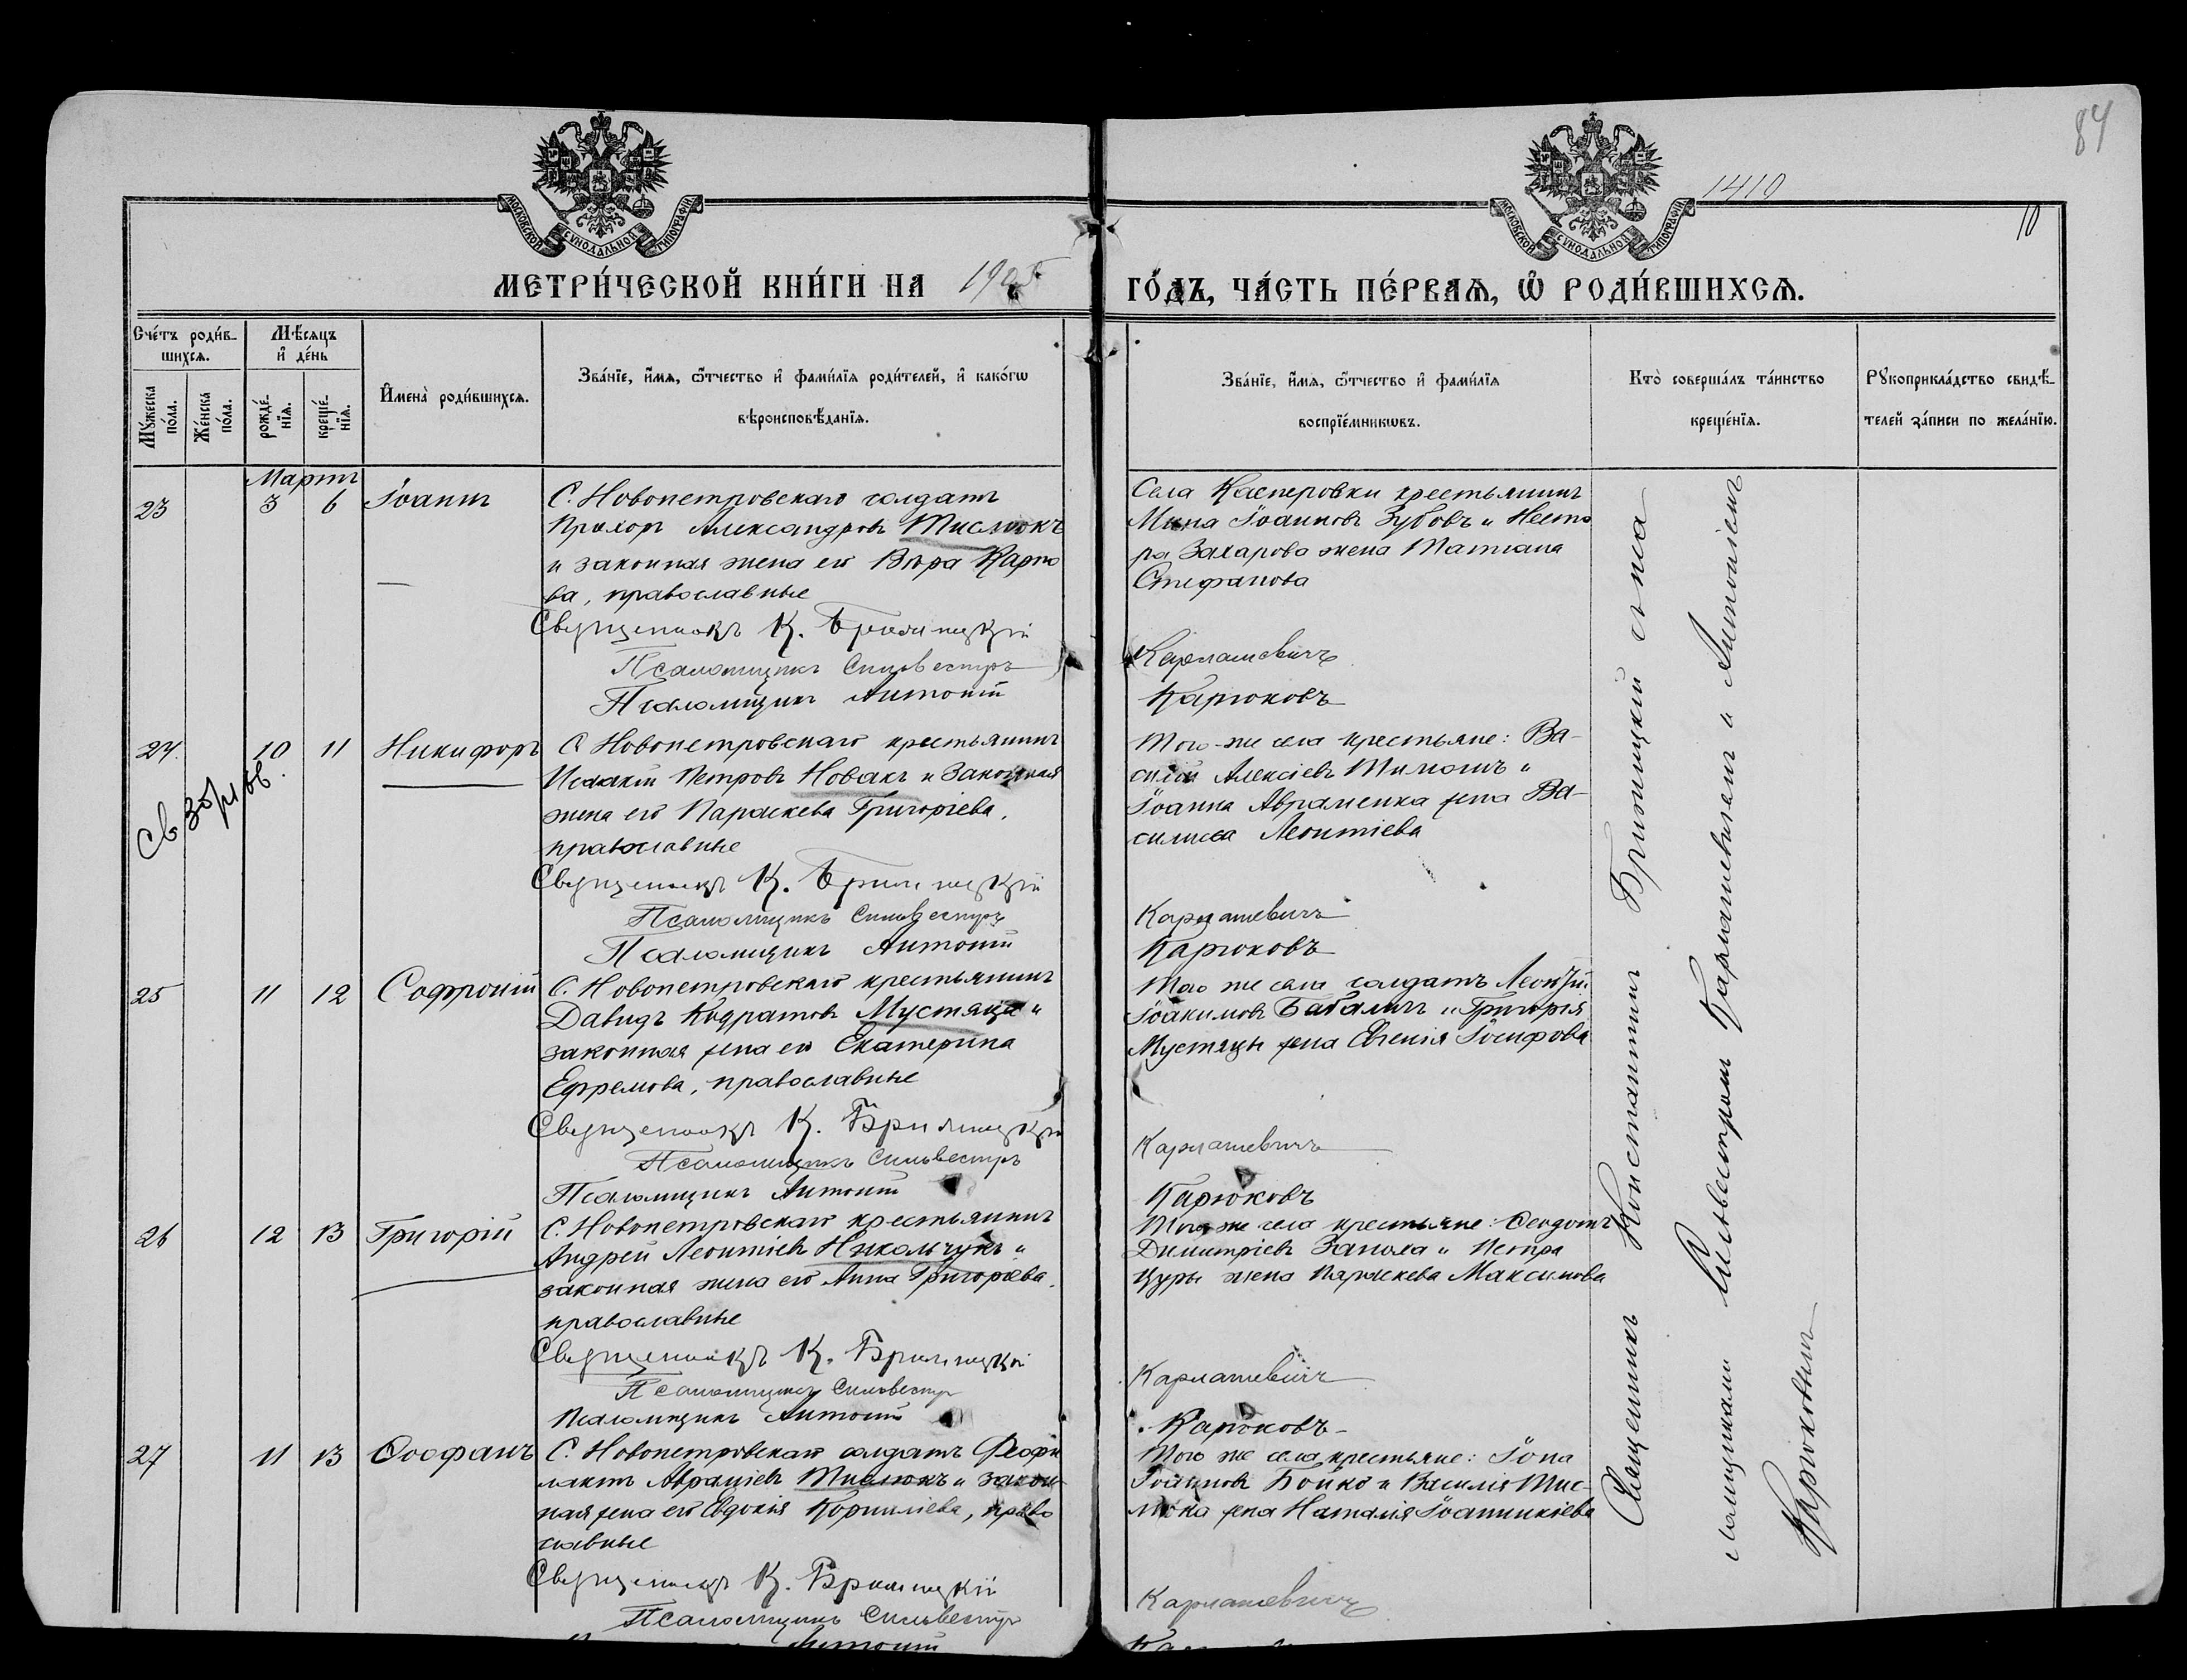 84
1410
10
МОСКОВСКОЙ СУНОДАЛЬНОЙ ТИПОГРАФІИ
МОСКОВСКОЙ СУНОДАЛЬНОЙ ТИПОГРАФІИ
МЕТРИ́ЧЕСКОЙ КНИ́ГИ НА 1905 ГО́ДЪ, ЧА́СТЬ ПЕ́РВАѦ, Ѡ҆ РОДИ́ВШИХСѦ.
Сче́тъ роди́в-
шихсѧ.
Мꙋ́жеска по́ла.
Же́нска по́ла.
Мѣ́сѧцъ
и҆ де́нь
рожде́-
нїѧ.
креще́-
нїѧ.
И҆мена̀ роди́вшихсѧ.
Зва́нїе, и҆́мѧ, ѻ҆́тчество и҆ фами́лїѧ роди́телей, и҆ како́гѡ
вѣроисповѣ́данїѧ.
Зва́нїе, и҆́мѧ, ѻ҆́тчество и҆ фами́лїѧ
воспрїе́мникѡвъ.
Кто̀ соверша́лъ та́инство
креще́нїѧ.
Рꙋкоприкла́дство свидѣ́-
телей за́писи по жела́нїю.
Мартъ
23 3 6 Іоаннъ
С. Новопетровскаго солдатъ
Прохоръ Александровъ Тислюкъ
и законная жена его Вѣра Карпо
ва, православные
Священникъ К. Бриляицкій
Псаломщикъ Сильвестръ
Псаломщикъ Антоній
Села Касперовки крестьянинъ
Мина Іоанновъ Зубовъ и Несто
ра Захарова жена Татіана
Стефанова
Карпашевичъ
Карюковъ
24. 10 11 Никифоръ
С Новопетровскаго крестьянинъ
Исаакій Петровъ Новакъ и Законная
жена его Параскева Григоріева,
православные
Священникъ К.
Псаломщикъ Сильвестръ
Псаломщикъ Антоній
Того-же села крестьяне: Ва-
силій Алексіевъ и
Іоанна Авраменка жена Ва-
силиса Леонтіева
Карпашевичъ
Карюковъ
25 11 12 Софроній
С. Новопетровскаго крестьянинъ
Давидъ Кодратовъ Мустяца и
законная жена его Екатерина
Ефремова, православные
Священникъ К.
Псаломщикъ Сильвестръ
Псаломщикъ Антоній
Того же села солдатъ Леонтій
Іоакимовъ и Григорія
Мустяцы жена Евгенія Іосифова
Карпашевичъ
Карюковъ
26 12 13 Григорій
С. Новопетровскаго крестьянинъ
Андрей Леонтіевъ Никольчукъ и
законная жена его Анна Григорьева,
православные
Священникъ К.
Псаломщикъ Сильвестръ
Псаломщикъ Антоній
Того же села крестьяне: Ѳеодотъ
Димитріевъ и Петра
Цуры жена Параскева Максимова
Карпашевичъ
Карюковъ
27 11 13 Ѳеофанъ
С. Новопетровскаго солдатъ Феофи
лактъ Авраміевъ Тислюкъ и закон-
ная жена его Евдокія Корниліева, право
славные
Священникъ К.
Псаломщикъ Сильвестръ
Антоній
Того же села крестьяне: Іона
Іоанновъ Бойко и Василія Тис-
люка жена Наталія Іоанникіева
Карпашевичъ
Священникъ Константинъ съ пса
ломщиками Сильвестромъ Карпашевичемъ и Антоніемъ
Карюковымъ